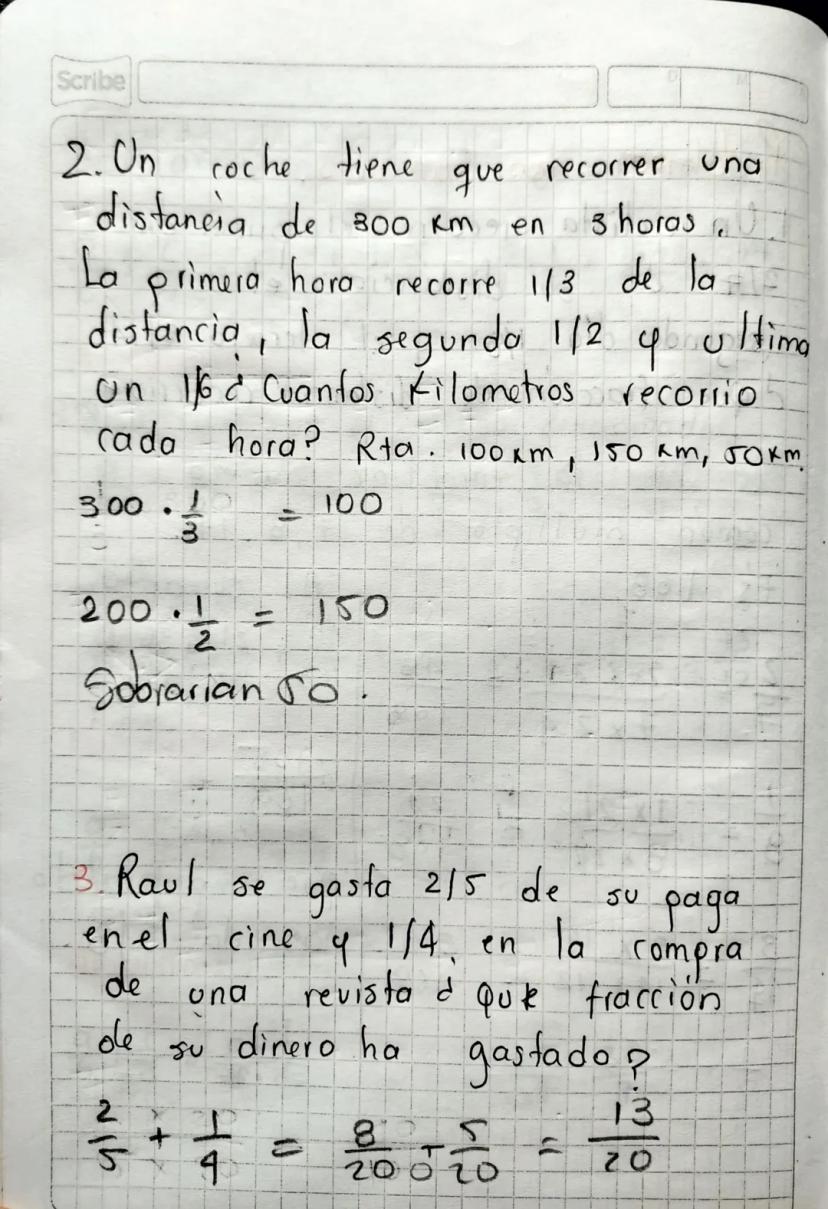 Scribe
2. Un coche tiene que recorrer una
distancia de 300 km en 3 horas.
La primera hora recorre 1/3 de la
distancia, la segunda 1/2 y ultima
un 1/6 ¿ Cuantos Kilometros recorrio
cada hora? Rta. 100 km, 150 km, 50 km.
300 · 1/3 = 100
200 · 1/2 = 150
Sobrarian 50.
3. Raul se gasta 2/5 de su paga
en el cine y 1/4 en la compra
de una revista ¿ que fracción
de su dinero ha gastado?
2/5 + 1/4 = 8/20 + 5/20 = 13/20